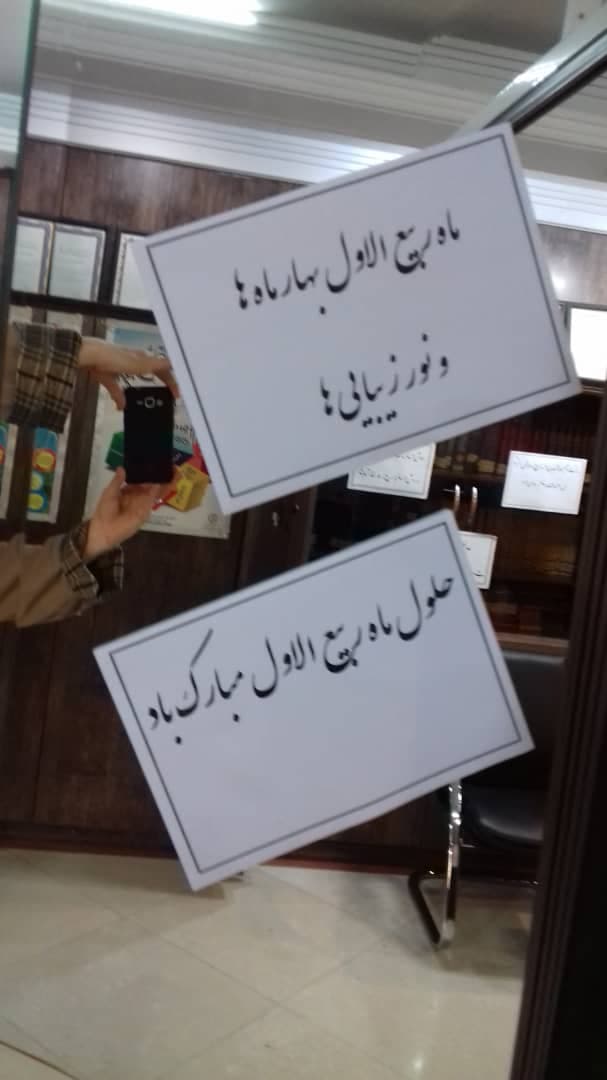 ماه ربیع الاول بهار ماه ها
و نور زیبایی ها
حلول ماه ربیع الاول مبارک باد